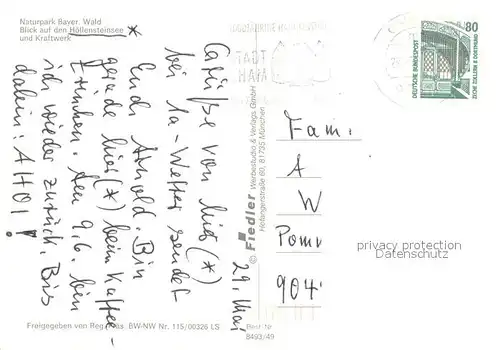 Naturpark Bayer. Wald
Blick auf den Höllensteinsee *
und Kraftwerk
Grüße von hier (*)
bei 1a-Wetter sendet
Euch Arnold. Bin
gerade hier (*) beim Kaffee-
trinken. Am 9.6. bin
ich wieder zurück. Bis
dahin: AHOI!
29. Mai
© Fiedler Werbestudio & Verlags GmbH
80, 81735 München
Fam.
A
W
904
80
DEUTSCHE BUNDESPOST
ZECHE ZOLLERN II DORTMUND
privacy protection
Datenschutz
Freigegeben von Reg. BW-NW Nr. 115/00326 LS
Best.-Nr.
8493/49